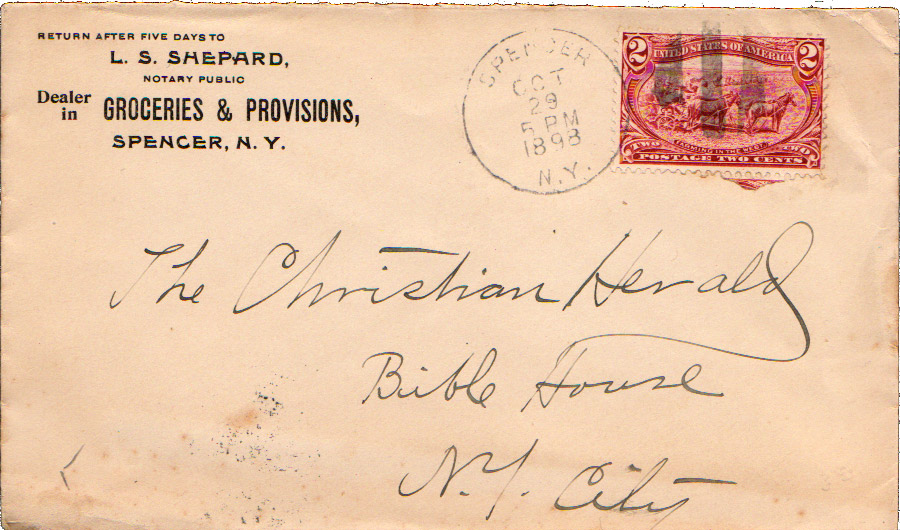 RETURN AFTER FIVE DAYS TO
L. S. SHEPARD,
NOTARY PUBLIC
Dealer in GROCERIES & PROVISIONS,
SPENCER, N. Y.
SPENCER
OCT
29
5 PM
1898
N.Y.
2 UNITED STATES OF AMERICA 2
FARMING IN THE WEST
TWO TWO
POSTAGE TWO CENTS
The Christian Herald
Bible House
N.Y. City